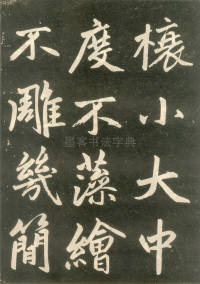 榱小大中
度不藻繪
不雕幾簡
墨客书法字典